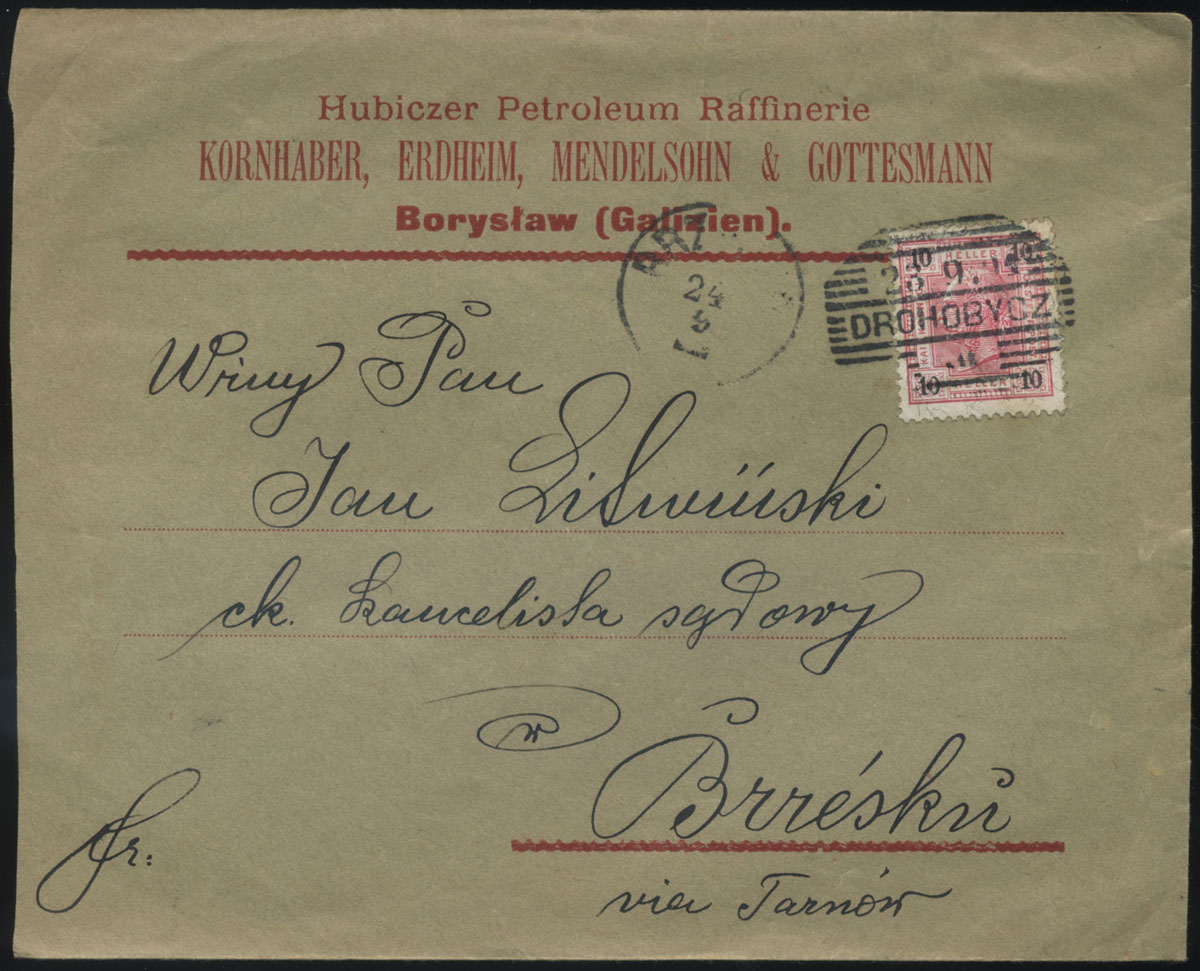 Hubiczer Petroleum Raffinerie
KORNHABER, ERDHEIM, MENDELSOHN & GOTTESMANN
Borysław (Galizien).
BRZ
24
9
10 HELLER 10
23 9.
DROHOBYCZ
10 HELLER 10
Wny Pan
Jan Litwiński
ck. kancelista sądowy
w
Brzésku
fr:
via Tarnów